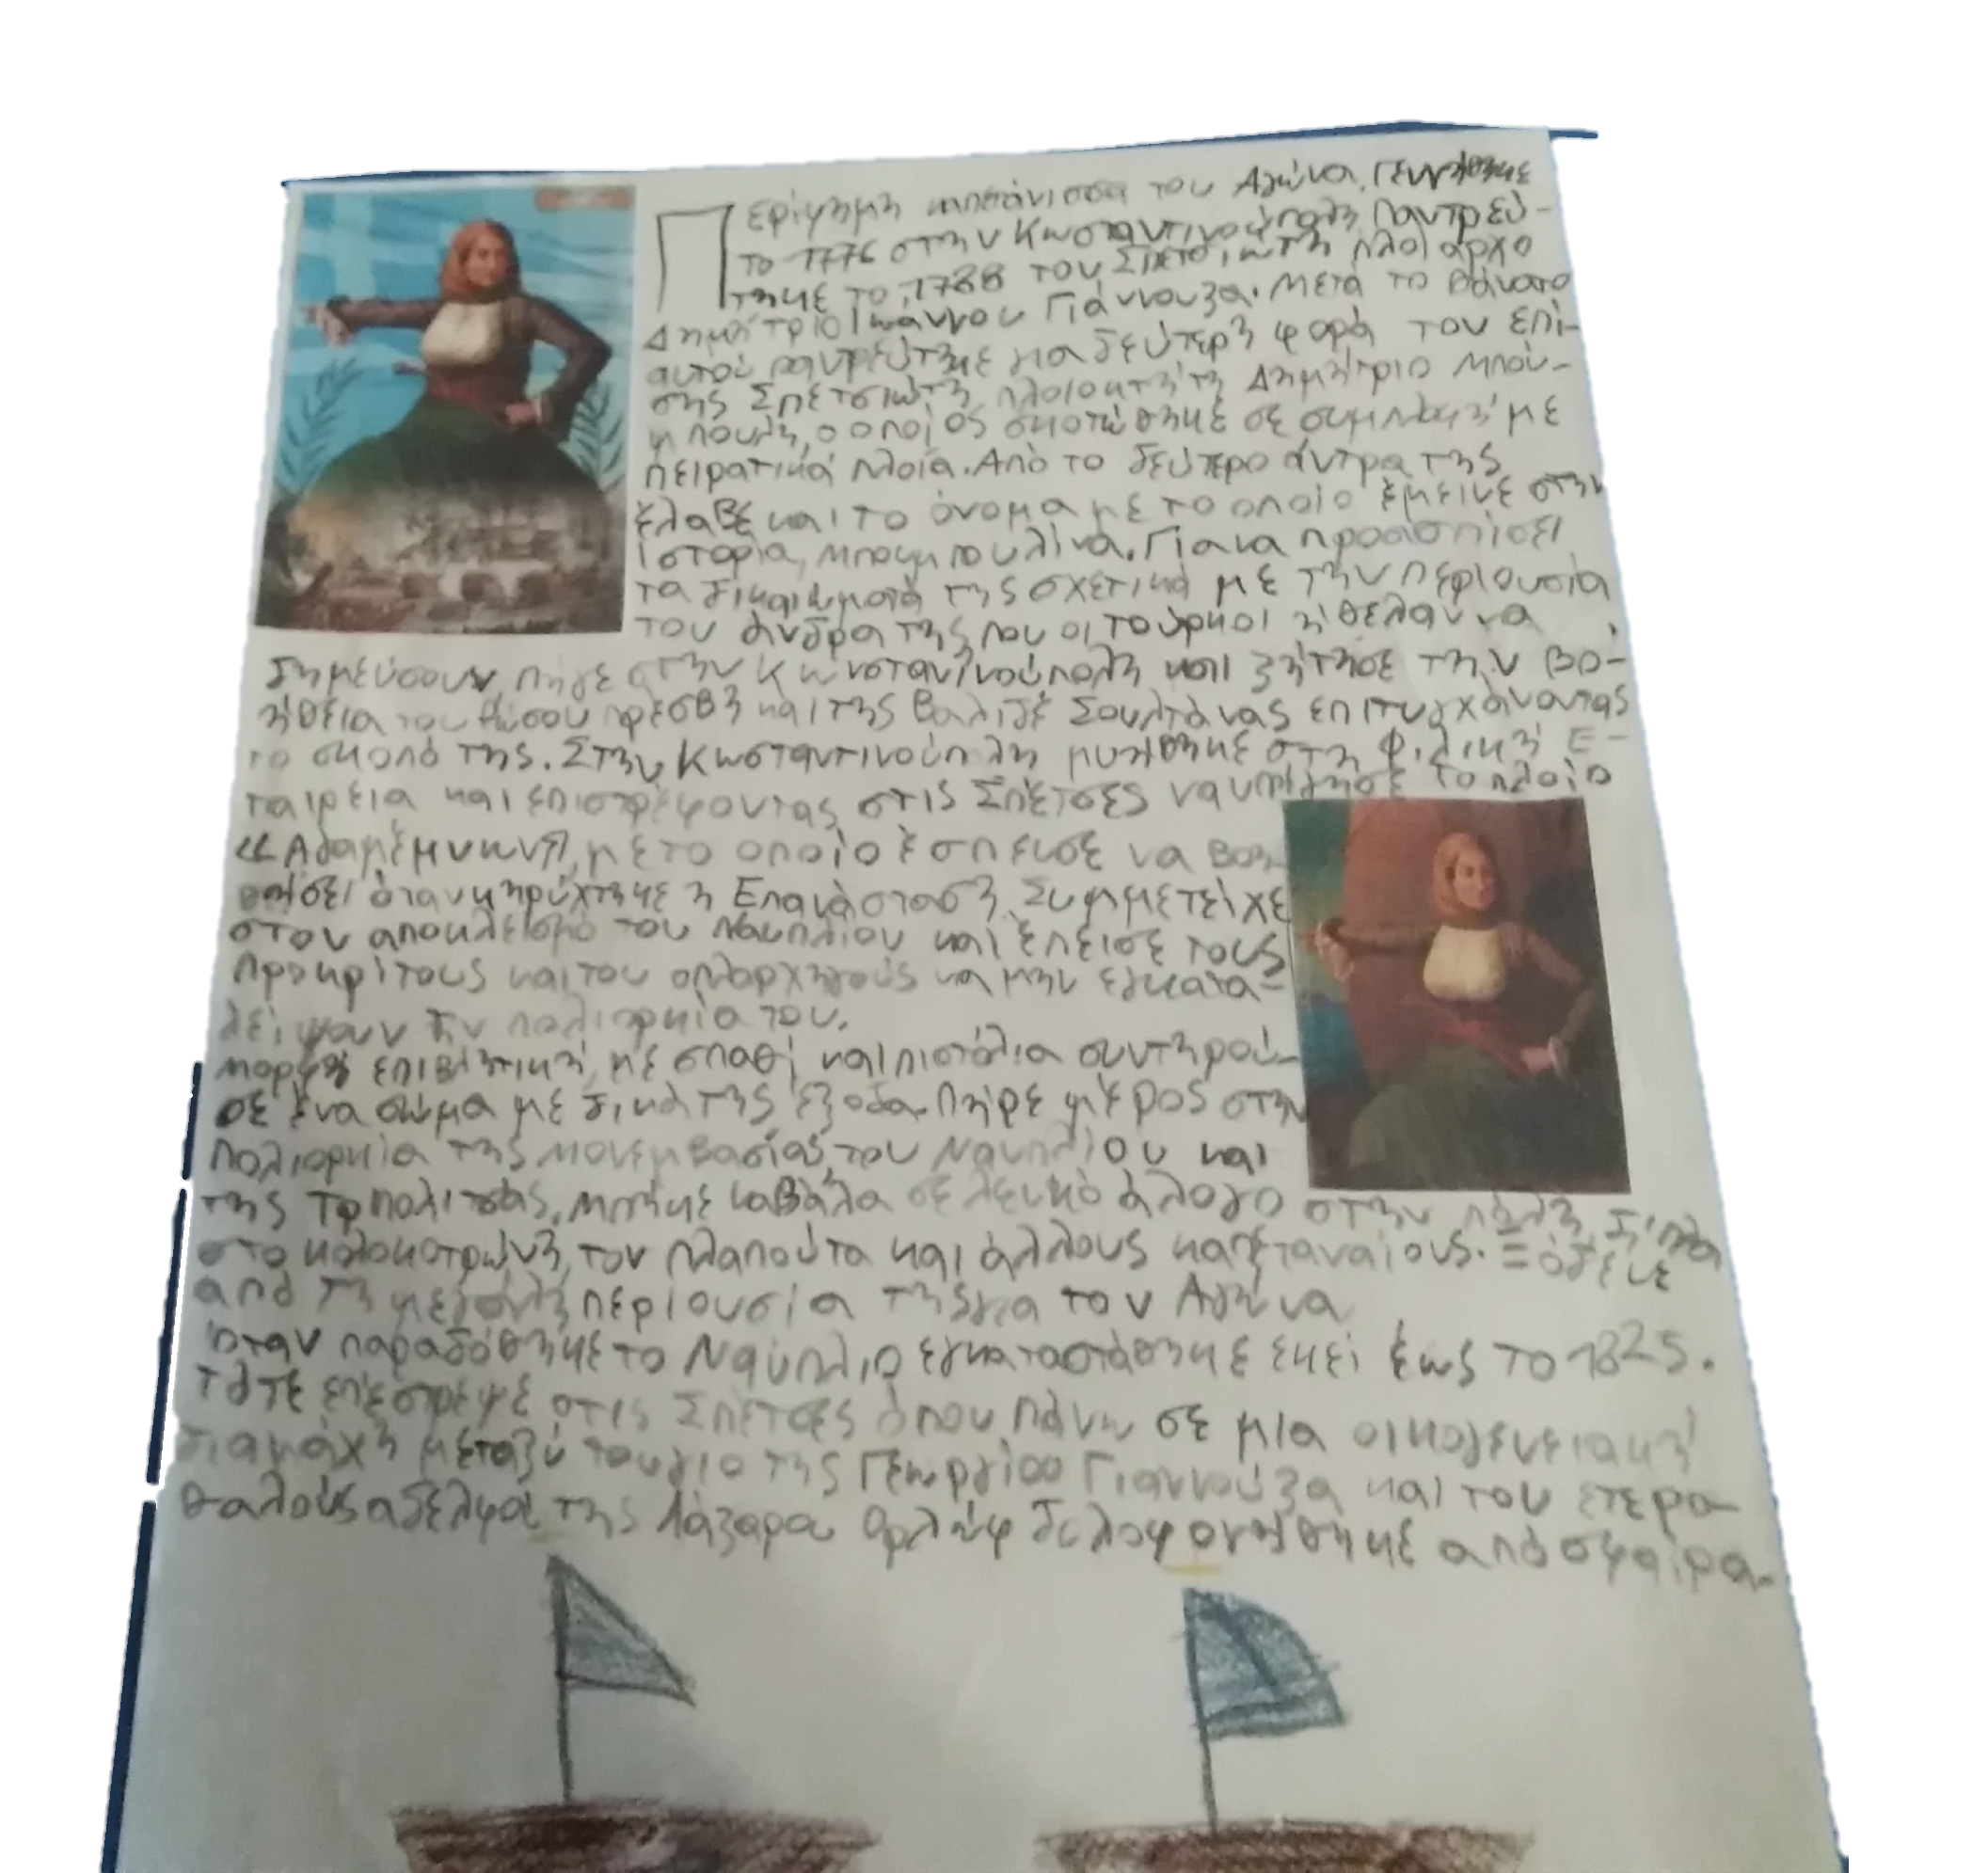 Περίφημη καπετάνισσα του Αγώνα. Γεννήθηκε
το 1776 στην Κωσταντινούπολη. Παντρεύ-
τηκε το 1788 τον Σπετσιώτη πλοίαρχο
Δημήτριο Ιωάννου Γιάννουζα. Μετά το θάνατο
αυτού παντρεύτηκε για δεύτερη φορά τον επί-
σης Σπετσιώτη πλοιοκτήτη Δημήτριο Μπού-
μπουλη, ο οποίος σκοτώθηκε σε συμπλοκή με
πειρατικά πλοία. Από το δεύτερο άντρα της
έλαβε και το όνομα με το οποίο έμεινε στην
ιστορία, Μπουμπουλίνα. Για να προασπίσει
τα δικαιώματά της σχετικά με την περιουσία
του άνδρα της που οι τούρκοι ήθελαν να
δημεύσουν, πήγε στην Κωνσταντινούπολη και ζήτησε την βο-
ήθεια του Ρώσου πρέσβη και της Βαλιδέ Σουλτάνας επιτυγχάνοντας
το σκοπό της. Στην Κωσταντινούπλη μυήθηκε στη Φιλική Ε-
ταιρεία και επιστρέφοντας στις Σπέτσες ναυπήγησε το πλοίο
«Αγαμέμνων», με το οποίο έσπευσε να βοη-
θήσει όταν κηρύχτηκε η Επανάσταση. Συμμετείχε
στον αποκλεισμό του Ναυπλίου και έπεισε τους
προκρίτους και του οπλαρχηγούς να μην εγκατα-
λείψουν την πολιορκία του.
Μορφή επιβλητική, με σπαθί και πιστόλια συντηρού-
σε ένα σώμα με δικά της έξοδα. Πήρε μέρος στην
πολιορκία της Μονεμβασίας, του Ναυπλίου και
της Τριπολιτσάς, μπήκε καβάλα σε λευκό άλογο στην πόλη, δίπλα
στο Κολοκοτρώνη, τον Πλαπούτα και άλλους καπεταναίους. Ξόδεψε
από τη μεγάλη περιουσία της για τον Αγώνα
Όταν παραδόθηκε το Ναύπλιο εγκαταστάθηκε εκεί έως το 1825.
Τότε επέστρεψε στις Σπέτσες όπου πάνω σε μια οικογενειακή
διαμάχη μεταξύ του γιο της Γεωργίου Γιαννούζα και του ετερο-
θαλούς αδελφού της Λάζαρου Ορλώφ δολοφονήθηκε από σφαίρα.